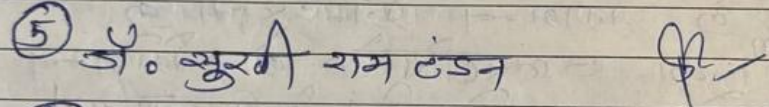 ⑤ डॉ. सुखी राम टंडन